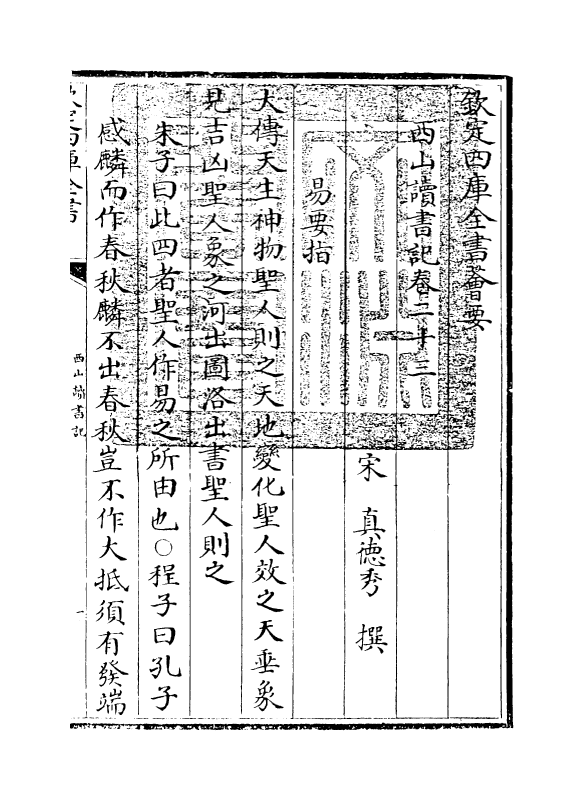 欽定四庫全書薈要
西山讀書記卷二十三
宋　真德秀　撰
易要指
大傳天生神物聖人則之天地變化聖人效之天垂象
見吉凶聖人象之河出圖洛出書聖人則之
朱子曰此四者聖人作易之所由也○程子曰孔子
感麟而作春秋麟不出春秋豈不作大抵須有發端
欽定四庫全書
西山讀書記
一